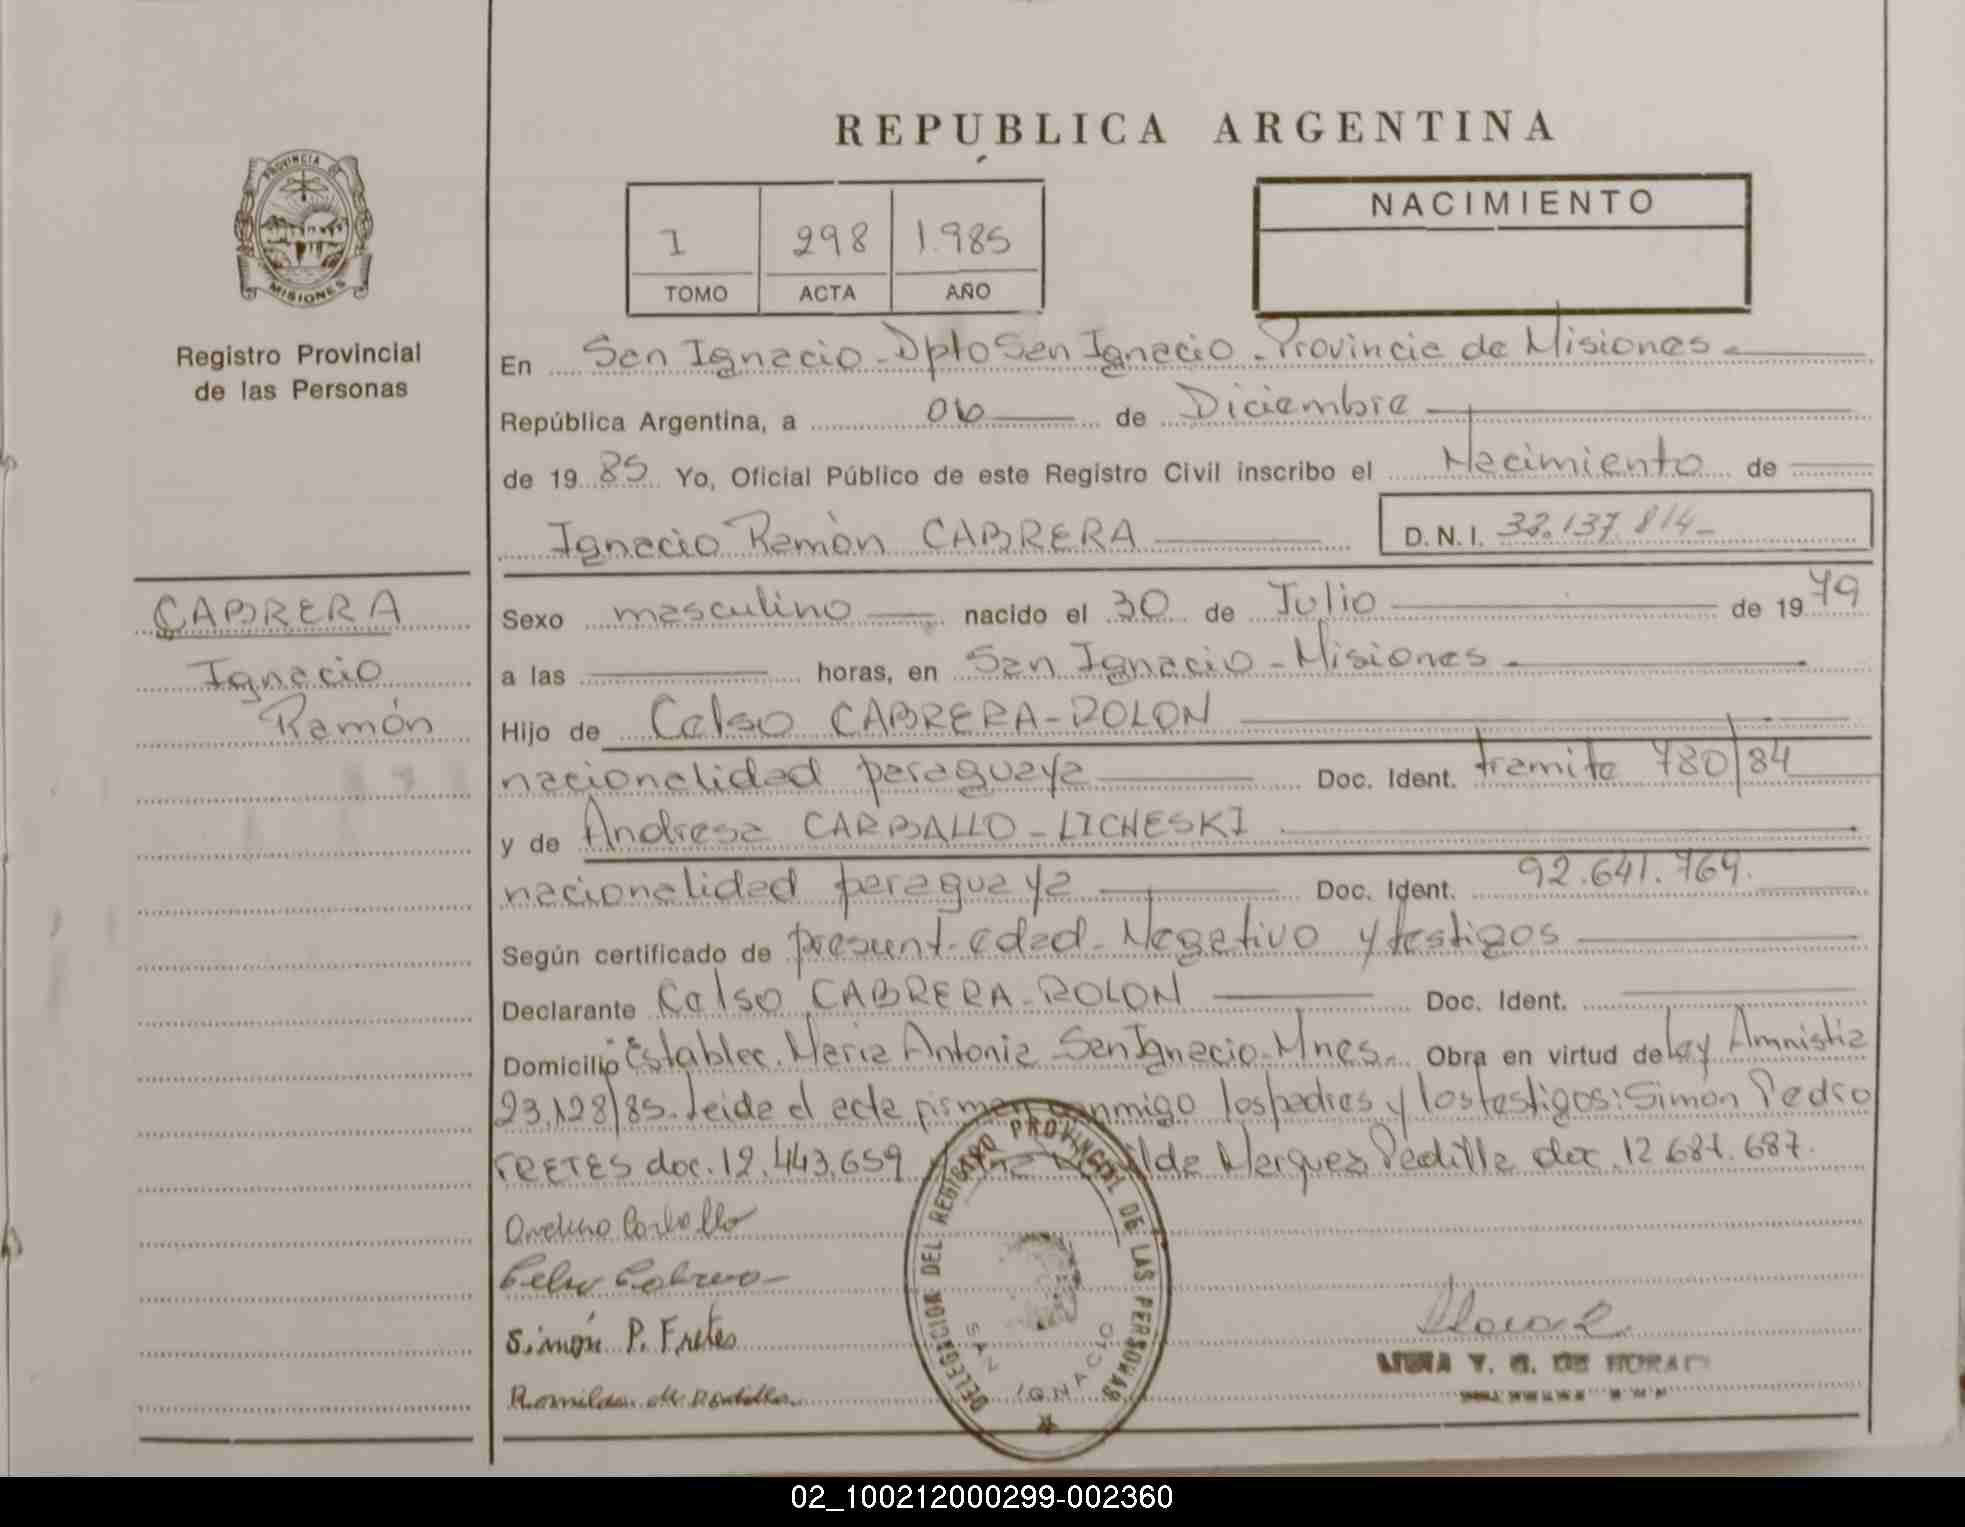 REPUBLICA ARGENTINA
PROVINCIA DE
MISIONES
Registro Provincial
de las Personas
1 298 1.985
TOMO ACTA AÑO
NACIMIENTO
En San Ignacio - Dpto San Ignacio - Provincia de Misiones
República Argentina, a 06 de Diciembre
de 19 85 Yo, Oficial Público de este Registro Civil inscribo el Nacimiento de
Ignacio Ramón CABRERA D.N.I. 33.137.814-
CABRERA
Ignacio
Ramón
Sexo masculino nacido el 30 de Julio de 19 79
a las horas, en San Ignacio - Misiones
Hijo de Celso CABRERA - ROLON
nacionalidad paraguaya Doc. Ident. tramite 780/84
y de Andresa CARBALLO - LICHESKI
nacionalidad paraguaya Doc. Ident. 92.641.769.
Según certificado de presunt. edad - Negativo y testigos
Declarante Celso CABRERA - ROLON Doc. Ident.
Domicilio Establec. Maria Antonia - San Ignacio - Mnes. Obra en virtud de Ley Amnistia
23,128/85. Leida el acta firman conmigo los padres y los testigos: Simón Pedro
FRETES doc. 12.443.659 Marquez Padilla doc. 12.681.687.
Carballo
Celso Cabrera
Simón P. Fretes
Romilda M. Padilla
DELEGACION DEL REGISTRO PROVINCIAL DE LAS PERSONAS
SAN IGNACIO
02_100212000299-002360